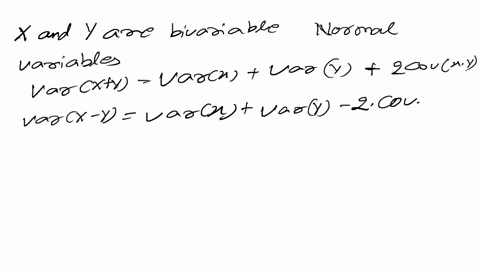 X and Y are bivariable Normal
variables
Var(X+Y) = Var(x) + Var(y) + 2Cov(x.y)
Var(X-Y) = Var(x) + Var(y) - 2.Cov.